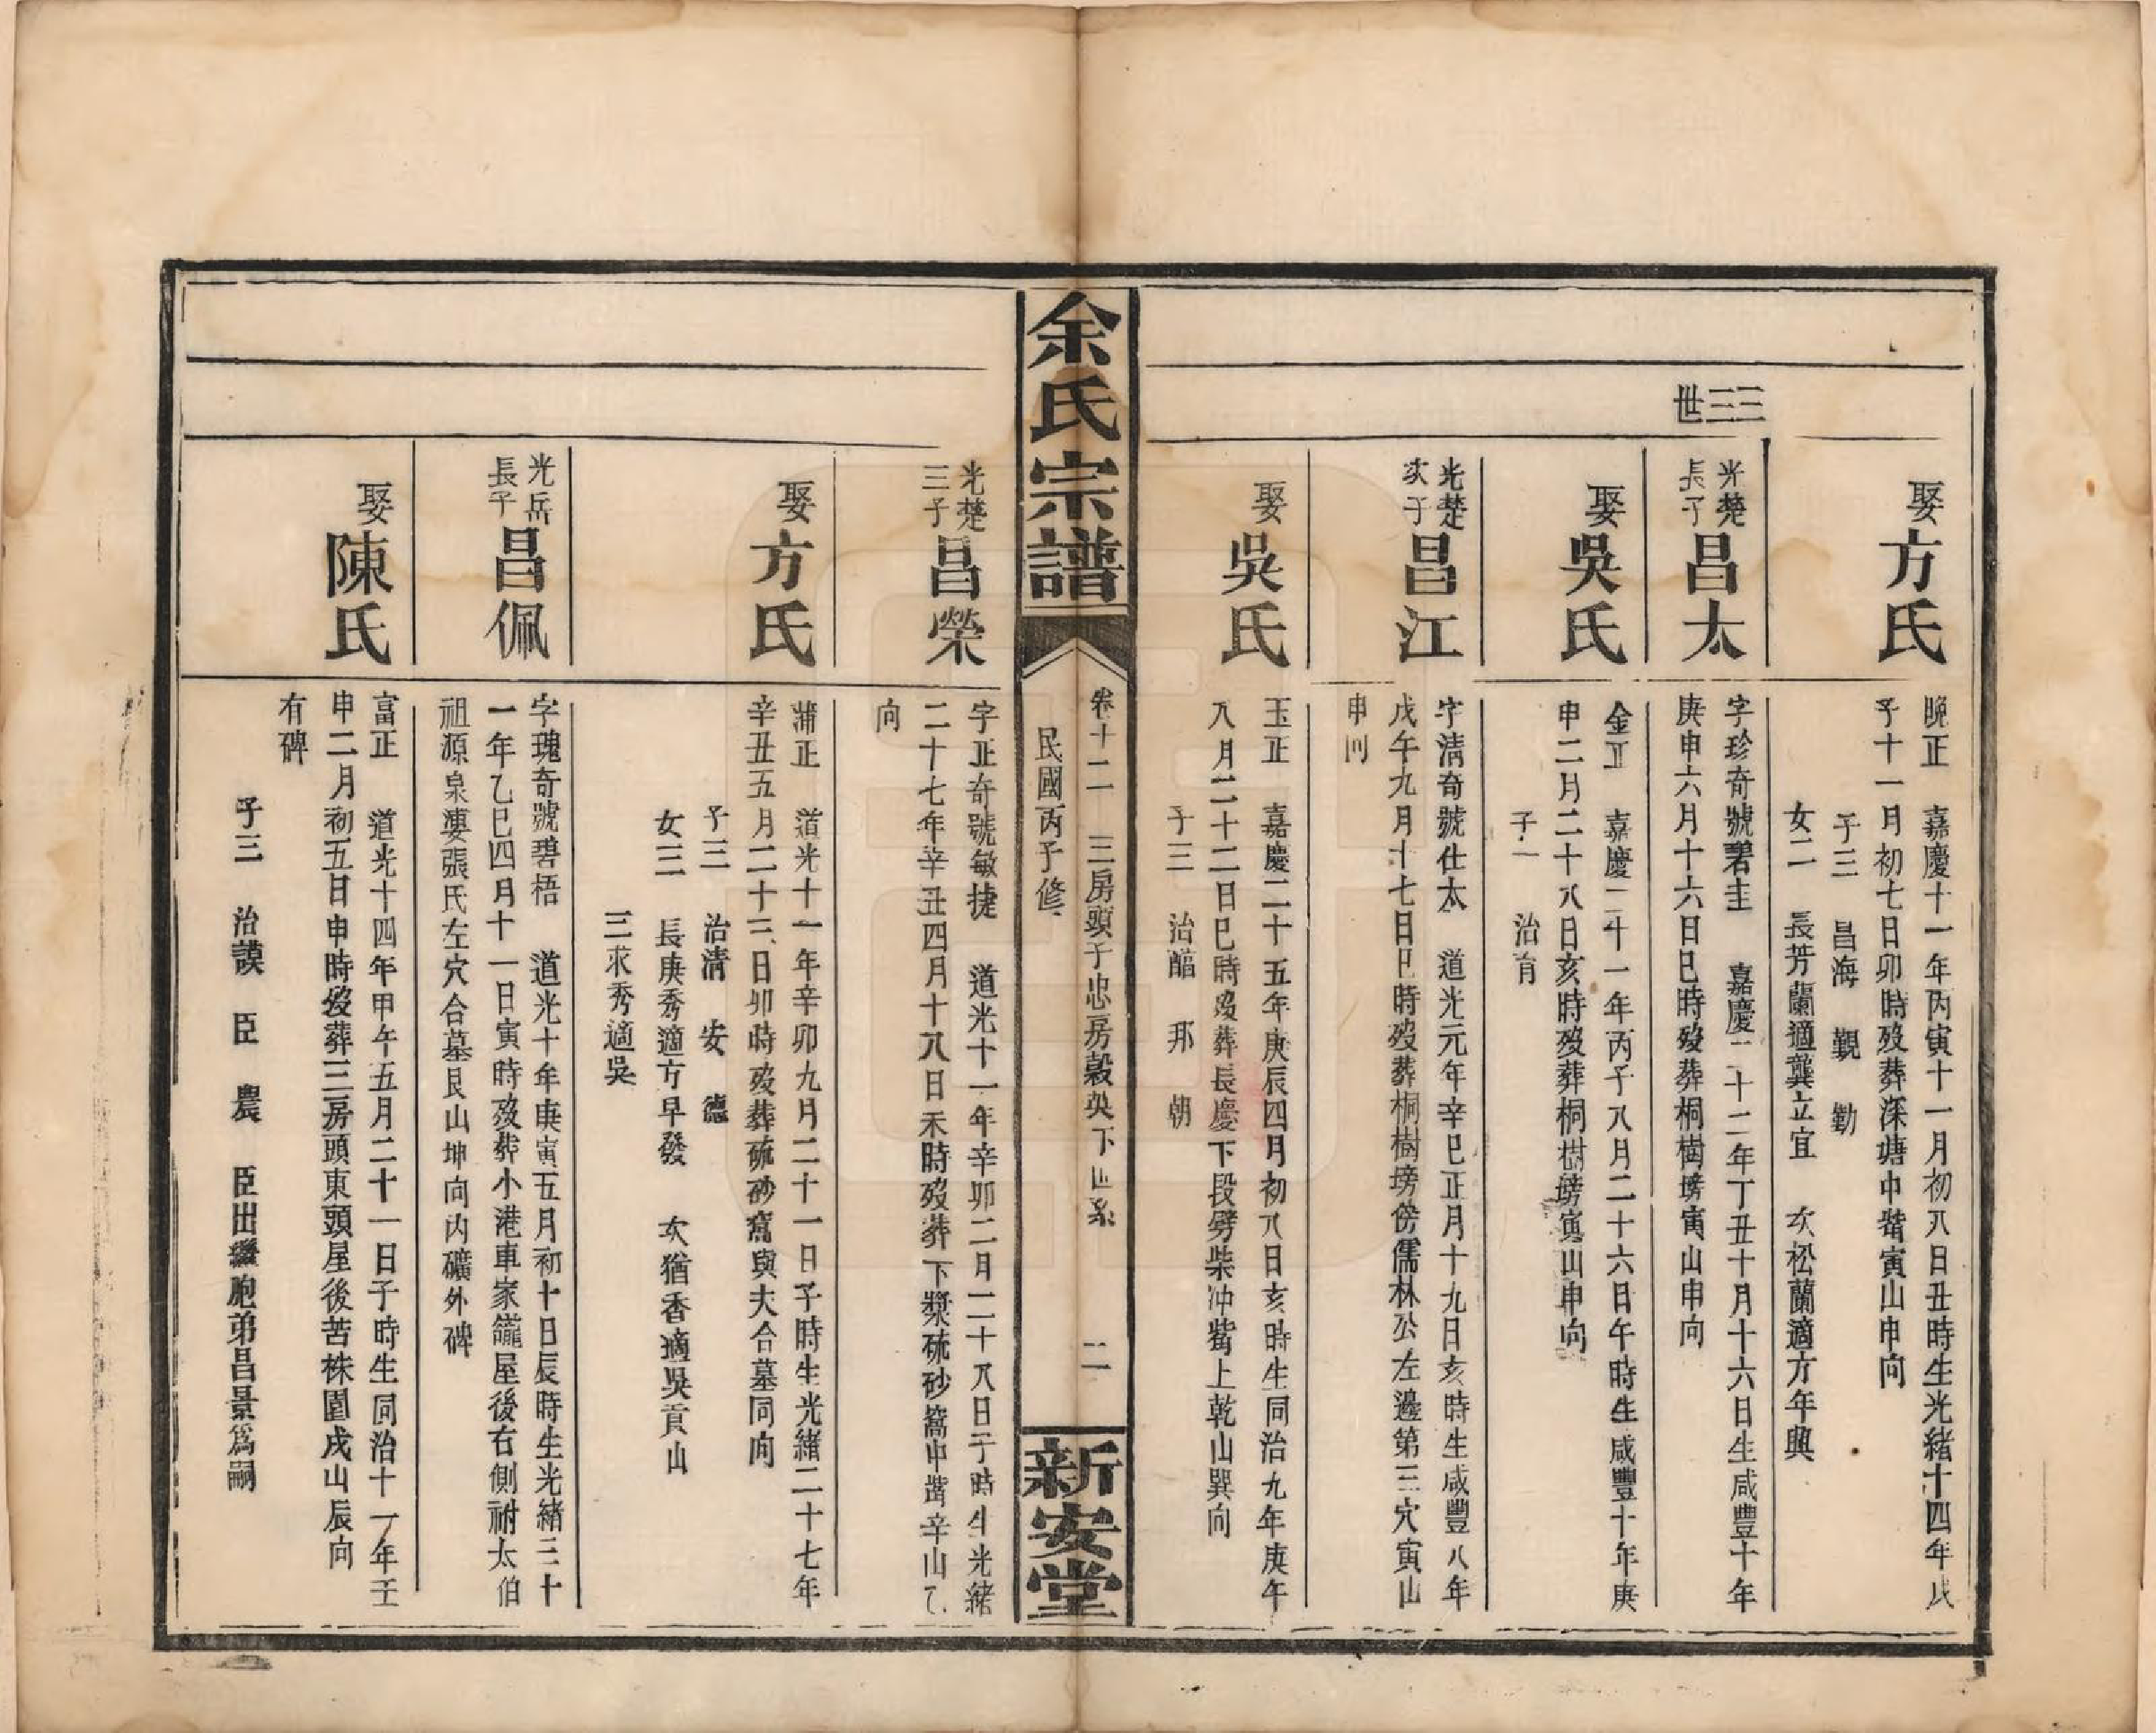 三三世
娶方氏
晚正 嘉慶十一年丙寅十一月初八日丑時生光緒十四年戊
子十一月初七日卯時歿葬深塘中㟙寅山申向
子三 昌海 觀 勤
女二 長芳蘭適龔立宜 次松蘭適方年興
光楚
長子
昌太
字珍奇號碧圭 嘉慶二十二年丁丑十月十六日生咸豐十年
庚申六月十六日巳時歿葬桐樹塝寅山申向
娶吳氏
金正 嘉慶二十一年丙子八月二十六日午時生咸豐十年庚
申二月二十八日亥時歿葬桐樹塝寅山申向
子一 治育
光楚
次子
昌江
字清奇號仕太 道光元年辛巳正月十九日亥時生咸豐八年
戊午九月十七日巳時歿葬桐樹塝傍儒林公左邊第三穴寅山
申向
娶吳氏
玉正 嘉慶二十五年庚辰四月初八日亥時生同治九年庚午
八月二十二日巳時歿葬長慶下段劈柴冲㟙上乾山巽向
子三 治 邦 朝
余氏宗譜
卷十二 三房頭子忠房穀英下世系 二
民國丙子修
新安堂
光楚
三子
昌榮
字正奇號敏捷 道光十一年辛卯二月二十八日子時生光緒
二十七年辛丑四月十八日未時歿葬下槳硫砂窩中㟙辛山乙
向
娶方氏
蒲正 道光十一年辛卯九月二十一日子時生光緒二十七年
辛丑五月二十三日卯時歿葬硫砂窩與夫合墓同向
子三 治清 安 德
女三 長庚秀適方早發 次猶香適吳貢山
三求秀適吳
光岳
長子
昌佩
字瑰奇號碧梧 道光十年庚寅五月初十日辰時生光緒三十
一年乙巳四月十一日寅時歿葬小港車家巃屋後右側祔太伯
祖源泉婁張氏左穴合墓艮山坤向內礦外碑
娶陳氏
富正 道光十四年甲午五月二十一日子時生同治十一年壬
申二月初五日申時歿葬三房頭東頭屋後苦株園戌山辰向
有碑
子三 治謨 臣 農 臣出繼胞弟昌景爲嗣